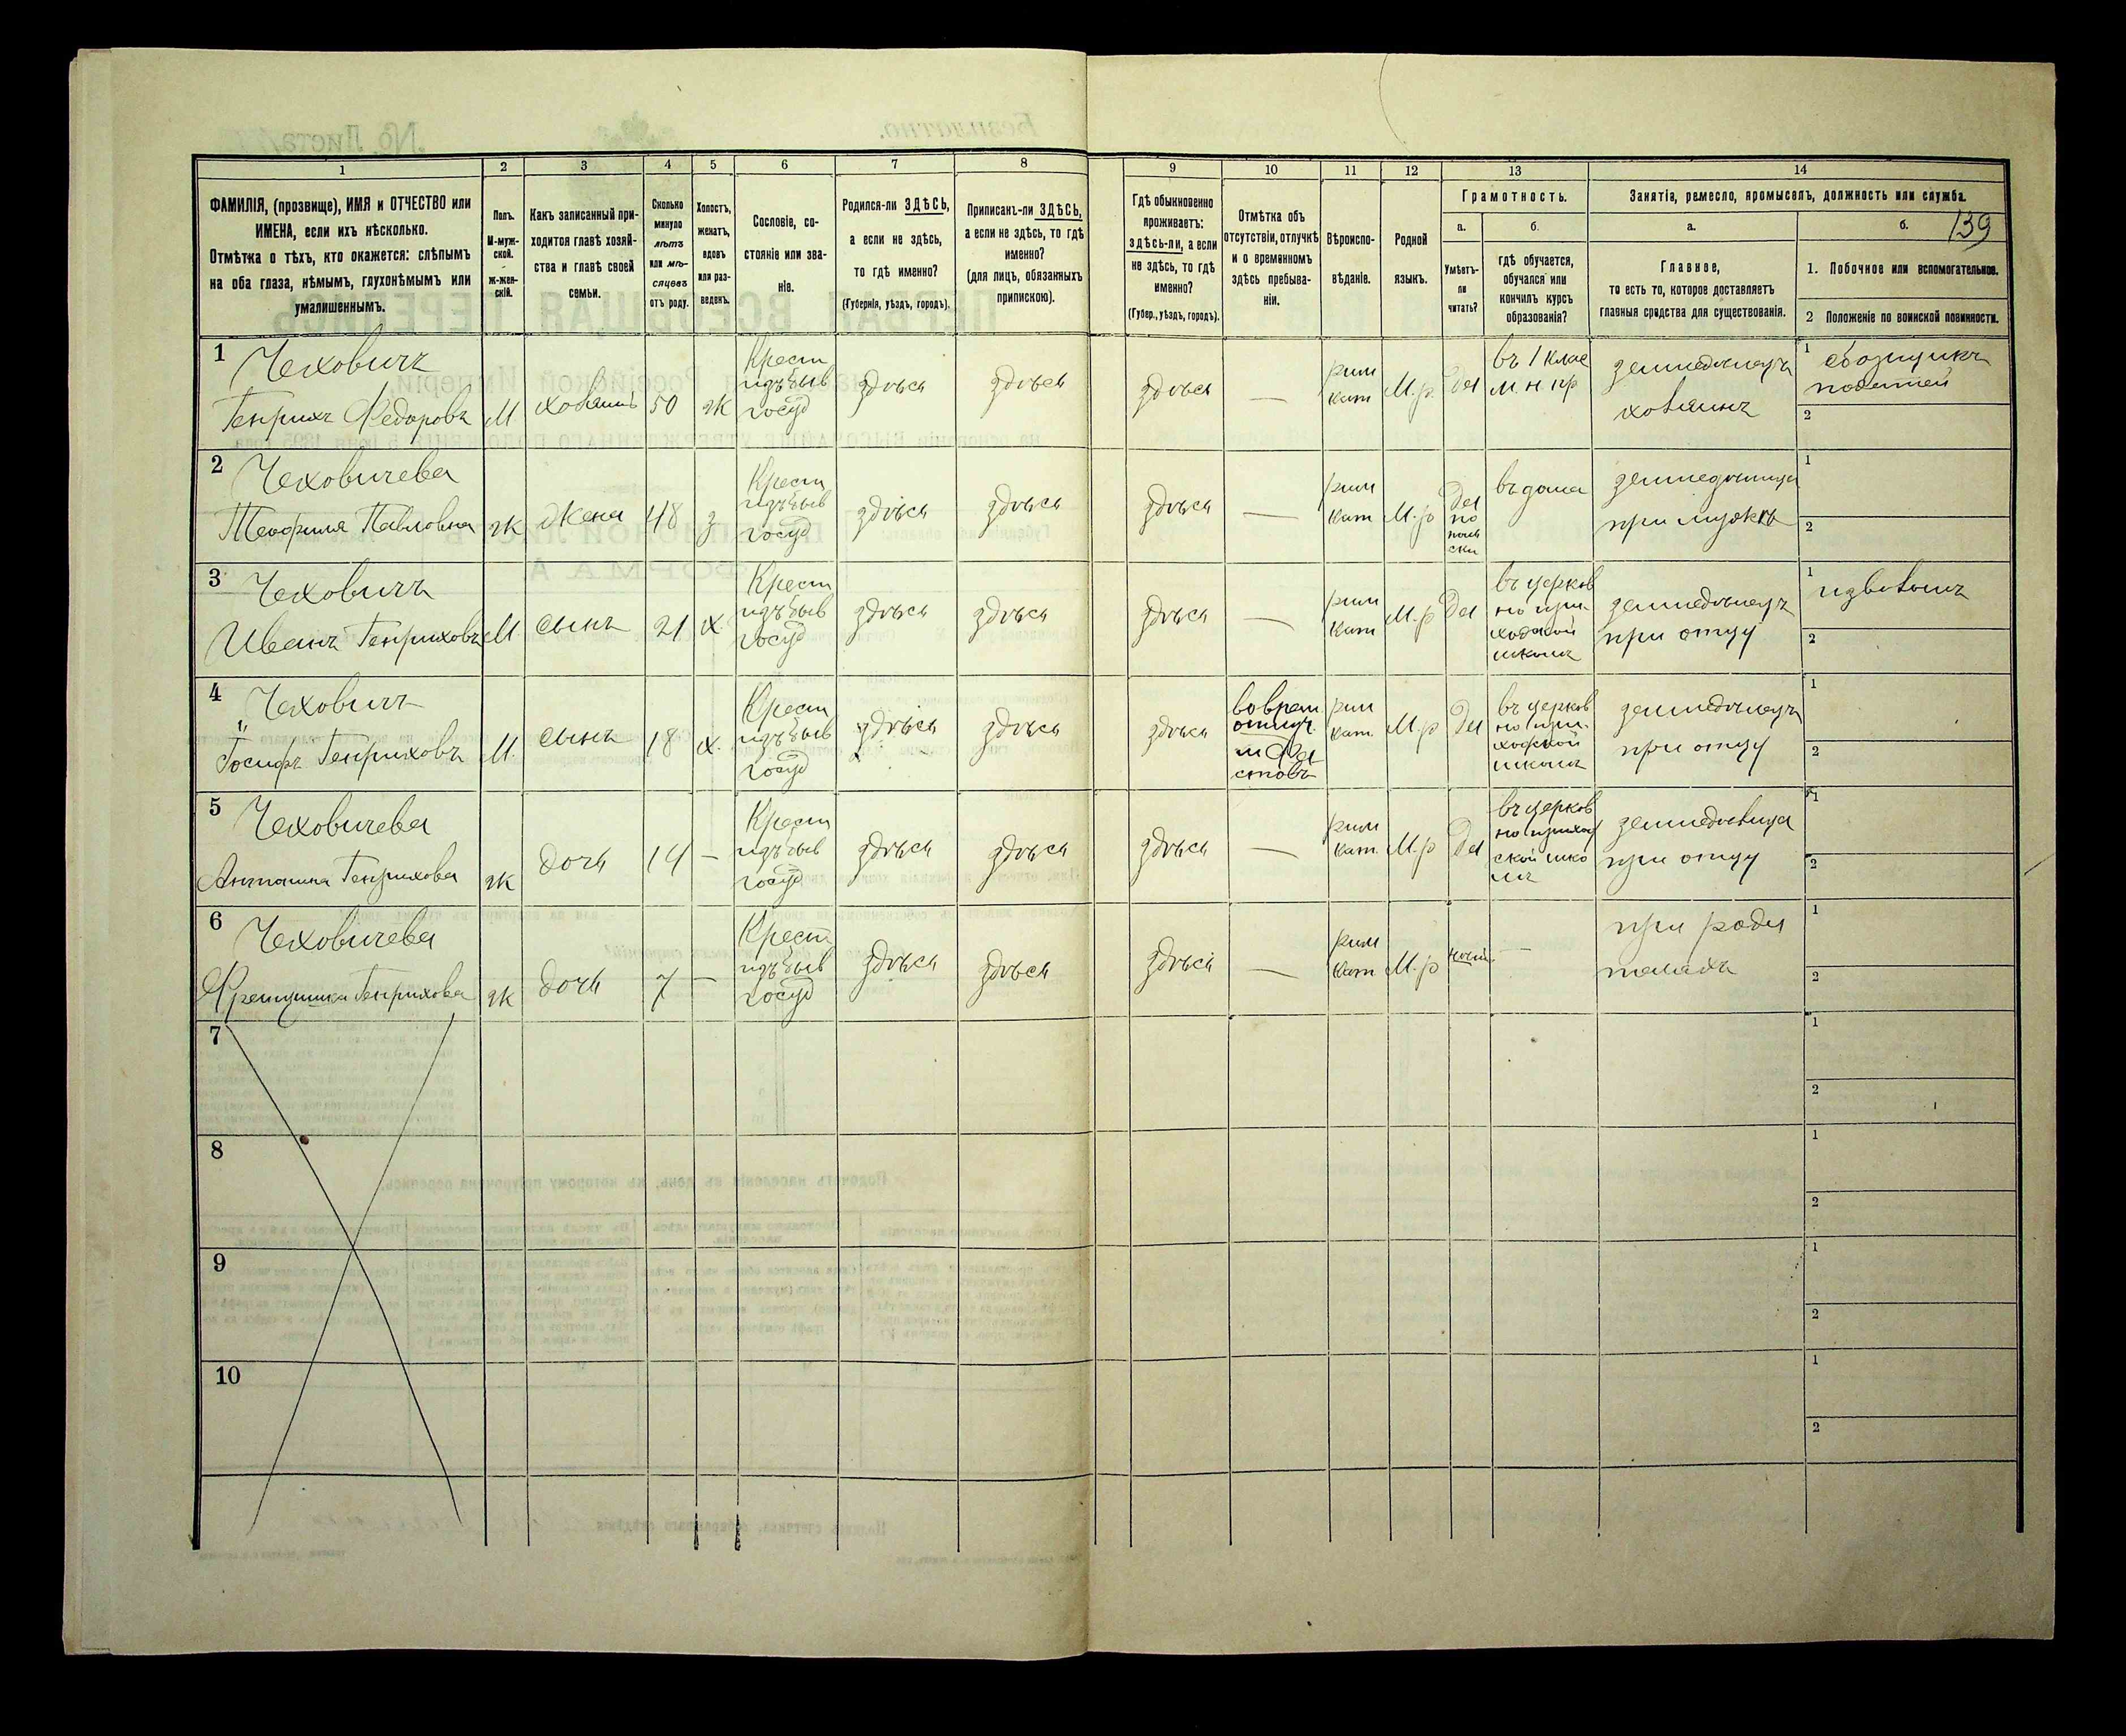 139
1
2
3
4
5
6
7
8
9
10
11
12
13
14
ФАМИЛІЯ, (прозвище), ИМЯ и ОТЧЕСТВО или
ИМЕНА, если ихъ нѣсколько.
Отмѣтка о тѣхъ, кто окажется: слѣпымъ
на оба глаза, нѣмымъ, глухонѣмымъ или
умалишеннымъ.
Полъ.
М-муж-
ской.
ж-жен-
скій.
Какъ записанный при-
ходится главѣ хозяй-
ства и главѣ своей
семьи.
Сколько
минуло
лѣтъ
или мѣ-
сяцевъ
отъ роду.
Холостъ,
женатъ,
вдовъ
или раз-
веденъ.
Сословіе, со-
стояніе или зва-
ніе.
Родился-ли ЗДѢСЬ,
а если не здѣсь,
то гдѣ именно?
(Губернія, уѣздъ, городъ).
Приписанъ-ли ЗДѢСЬ,
а если не здѣсь, то гдѣ
именно?
(для лицъ, обязанныхъ
припискою).
Гдѣ обыкновенно
проживаетъ:
ЗДѢСЬ-ЛИ, а если
не здѣсь, то гдѣ
именно?
(Губер., уѣздъ, городъ).
Отмѣтка объ
отсутствіи, отлучкѣ
и о временномъ
здѣсь пребыва-
ніи.
Вѣроиспо-
вѣданіе.
Родной
языкъ.
Грамотность.
а.
Умѣетъ-
ли
читать?
б.
гдѣ обучается,
обучался или
кончилъ курсъ
образованія?
Занятія, ремесло, промыселъ, должность или служба.
а.
Главное,
то есть то, которое доставляетъ
главныя средства для существованія.
б.
1. Побочное или вспомогательное.
2 Положеніе по воинской повинности.
1
Чеховичъ
Генрихъ Федоровъ
М
хозяинъ
50
ж
Крест
изъ быв
госуд
здѣсь
здѣсь
здѣсь
—
рим
кат
М.р.
да
въ 1 клас
м н пр
земледѣлецъ
хозяинъ
1
сборщикъ
податей
2
2
Чеховичева
Теофиля Павловна
ж
жена
48
з
Крест
изъ быв
госуд
здѣсь
здѣсь
здѣсь
—
рим
кат
М.р
да
по
поль
ски
въ дома
земледѣлица
при мужѣ
1
2
3
Чеховичъ
Иванъ Генриховъ
М
сынъ
21
х
Крест
изъ быв
госуд
здѣсь
здѣсь
здѣсь
—
рим
кат
М.р
да
въ церков
но при-
ходской
школѣ
земледѣлецъ
при отцу
1
извозомъ
2
4
Чеховичъ
Іосифъ Генриховъ
М.
сынъ
18
х.
Крест
изъ быв
госуд
здѣсь
здѣсь
здѣсь
рим
кат.
М.р
да
въ церков
но при-
ходской
школѣ
земледѣлецъ
при отцу
1
2
5
Чеховичева
Антонина Генрихова
ж
дочь
14
—
Крест
изъ быв
госуд
здѣсь
здѣсь
здѣсь
—
рим
кат.
М.р
да
въ церков
но приход
ской шко
лѣ
земледѣлица
при отцу
1
2
6
Чеховичева
Генрихова
ж
дочь
7
—
Крест
изъ быв
госуд
здѣсь
здѣсь
здѣсь
—
рим
кат
М.р
—
при роди
телахъ
1
2
7
1
2
8
1
2
9
1
2
10
1
2